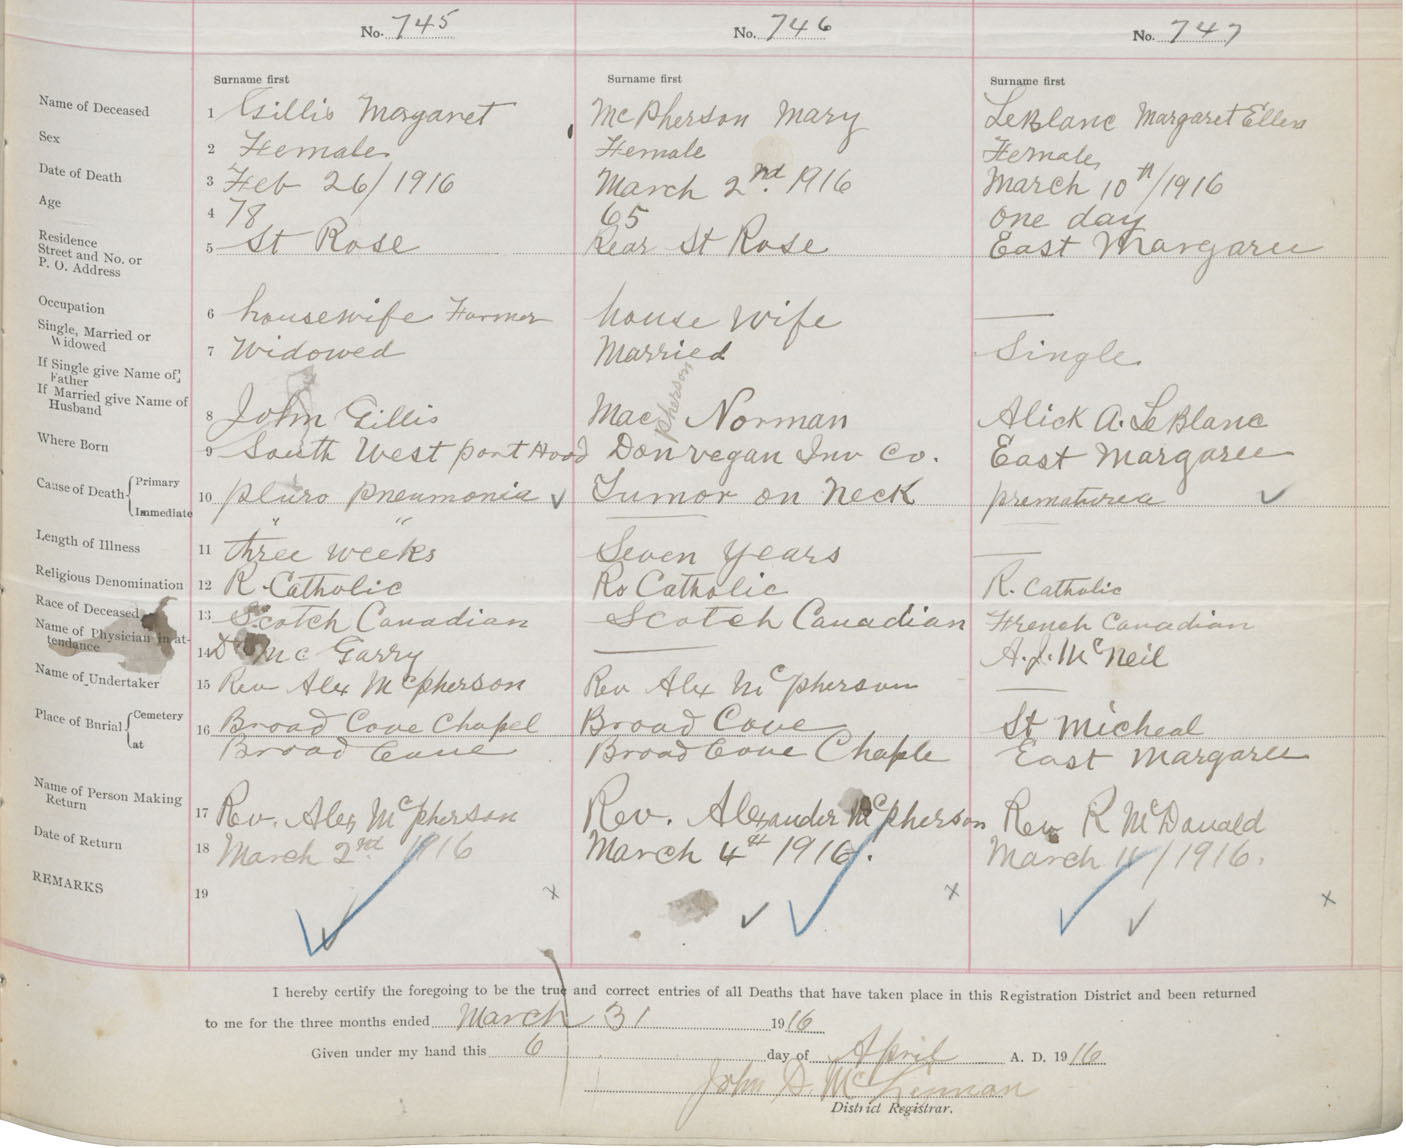 No. 745 No. 746 No. 747
Surname first Surname first Surname first
Name of Deceased 1 Gillis Margaret McPherson Mary LeBlanc Margaret Ellen
Sex 2 Female Female Female
Date of Death 3 Feb 26/1916 March 2nd 1916 March 10th/1916
Age 4 78 65 one day
Residence
Street and No. or
P. O. Address
5 St Rose Rear St Rose East Margaree
Occupation 6 housewife Farmer house wife —
Single, Married or
Widowed
7 Widowed Married Single
If Single give Name of
Father
If Married give Name of
Husband
pherson
8 John Gillis Mac Norman Alick A. LeBlanc
Where Born 9 South West port Hood Donvegan Inv Co. East Margaree
Cause of Death { Primary
Immediate
10 pluro pneumonia ✓ Tumor on neck prematurea ✓
" "
Length of Illness 11 three weeks Seven years —
Religious Denomination 12 R. Catholic Ro Catholic R. Catholic
Race of Deceased 13 Scotch Canadian Scotch Canadian French Canadian
Name of Physician in at-
tendance
14 Dr McGarry — A. J. McNeil
Name of Undertaker 15 Rev Alex McPherson Rev Alex McPherson —
Place of Burial { Cemetery
at
16 Broad Cove Chapel Broad Cove St Micheal
Broad Cove Broad Cove Chaple East Margaree
Name of Person Making
Return
17 Rev. Alex McPherson Rev. Alexander McPherson Rev R McDonald
Date of Return 18 March 2nd 1916 March 4th 1916. March 11/1916.
REMARKS 19 x x x
I hereby certify the foregoing to be the true and correct entries of all Deaths that have taken place in this Registration District and been returned
to me for the three months ended March 31 1916
Given under my hand this 6 day of April A. D. 1916
John D. McLennan
District Registrar.